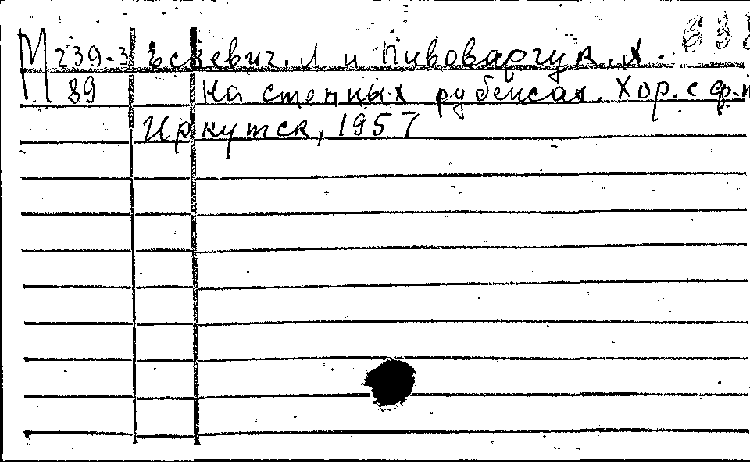 М 239-3 Ъскевич. Л и Пивоваргук. Х.
89 На степных рубежах. Хор. с ф.п
Иркутск, 1957